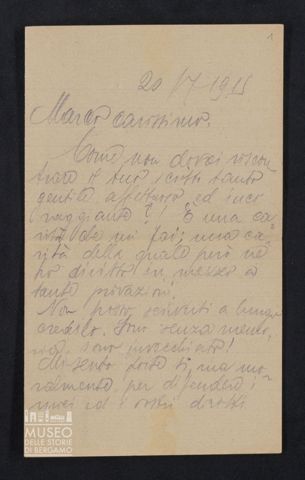 1
20/7 1915
Marco carissimo,
Come non dovrei riscon
trare il tuo scritto tanto
gentile affettuoso ed inco
raggiante?! È una ca
rità che mi fai; una ca
rità della quale però ne
ho diritto in mezzo a
tante privazioni!
Non posso scriverti a lungo
credilo. Sono senza memo
ria, sono invecchiato!
Mi sento forte sì, ma mo
ralmente per difendere i
miei ed i vostri diritti
MUSEO
DELLE STORIE
DI BERGAMO